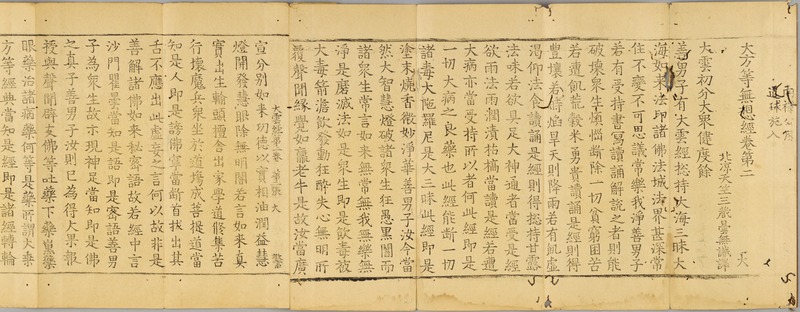 大方等無想經卷第二
北涼天竺三藏曇無讖譯
大雲初分大衆健度餘
善男子有大雲經捴持大海三昧大
海如來法印諸佛法城法界甚深常
住不變不可思議常樂我淨善男子
若有受持書寫讀誦解說之者則能
破壞衆生煩惱斷除一切貧窮困苦
若遭飢荒穀米勇貴讀誦是經則得
豐壤若時焰旱天則降雨若有飢虛
渴仰法食讀誦是經則得捴持甘露
法味若欲具足大神通者當受是經
欲雨法雨潤漬枯槁當讀是經若遭
大病亦當受持所以者何此經即是
一切大病之良藥也此經能斷一切
諸毒大陁羅尼是大三昧此經即是
塗末燒香微妙淨華善男子汝今當
然大智慧燈破諸衆生狂愚黑闇而
諸衆生常言如來無常無我無樂無
淨是磨滅法如是衆生即是飲毒被
大毒箭澹飲發動狂醉失心無明所
覆聲聞緣覺如羸老牛是故汝當廣
大雲經第二卷 第二張 大
宣分別如來功德以實相油潤益慧
燈開發慧眼除無明闇若言如來真
實出生輪頭檀舍出家學道修集苦
行壞魔兵衆坐於道塲成菩提道當
知是人即是謗佛寧當斬首拔出其
舌不應出此虛妄之言何以故非是
善解諸佛如來秘密語故若經中言
沙門瞿曇當知是語即是密語善男
子為衆生故示現神足當知即是佛
之真子善男子汝則已為得大果報
授與聲聞辟支佛等吐藥下藥熏藥
眼藥治諸病藥何等是藥所謂大乘
方等經典當知是經即是諸經轉輪